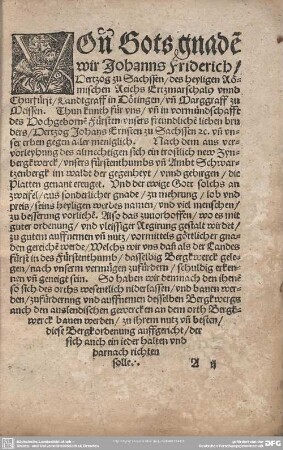 Von Gots gnadē
wir Johanns Friderich /
Hertzog zu Sachssen / des heyligen Rö-
mischen Reichs Ertzmarschalh vnnd
Churfürst / Landtgraff in Döringen / vn̄ Marggraff zu
Meissen. Thun kunth für vns / vn̄ in vormündschafft
des Hochgeborn̄ Fürsten vnsers freundliche lieben bru
ders / Hertzog Johans Ernsten zu Sachssen ꝛc. vn̄ vn-
ser erben gegen aller menigklich. Nach dem aus vor-
vorleyhung des almechtigen sich ein trostlich new Zyn-
bergkwerck / vnsers fürstenthumbs vn̄ Ambt Schwar-
tzenbergk im waldt der gegenheyt / vnnd gebirgen / die
Platten genant ereuget. Vnd der ewige Gott solchs an
zweifel / aus sonderlicher gnade / zu mehrung / lob vnd
preis / seins heyligen wordes namen / vnd viel menschen /
zu besserung vorlihē. Also das zuuorhoffen / wo es mit
guter ordenung / vnd vleissiger Regirung gestalt wirdet /
zu guten auffnemen vn̄ nutz / vormittels götlicher gna-
den gereichē werde / Welchs wir vns dan̄ als der Landes
fürst in des Fürstenthumb / dasselbig Bergkwerck gele-
gen / nach vnserm vermügen zufürdern / schuldig erken-
nen vn̄ geneigt sein. So haben wir demnach den ihene
so sich des orths wesentlich niderlassen / vnd bauen wer-
den / zufürderung vnd auffnemen desselben Bergkwergs
auch den auslendischen gewercken an dem orth Bergk-
werck bauen werden / zu ihrem nutz vn̄ besten /
diese Bergkordenung auffgericht / der
sich auch ein ieder halten vnd
darnach richten
solle.
A ij
DFG